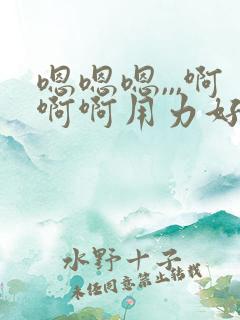 嗯嗯嗯,,,啊
啊啊用力好
水野十子
未经同意禁止转载